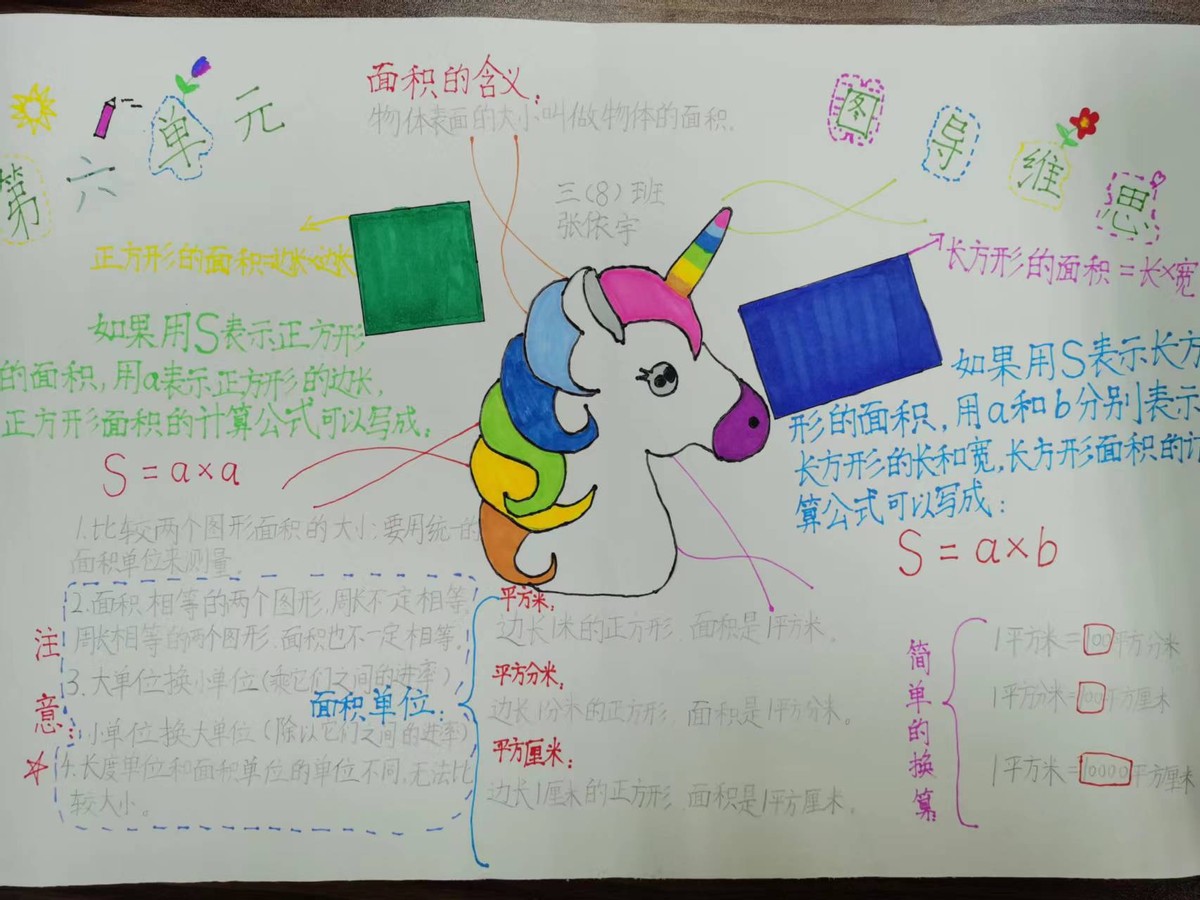 第六单元
思维导图
面积的含义:
物体表面的大小叫做物体的面积.
三(8)班
张依宇
正方形的面积=边长×边长
如果用S表示正方形
的面积,用a表示正方形的边长,
正方形面积的计算公式可以写成:
S=a×a
长方形的面积=长×宽
如果用S表示长方
形的面积,用a和b分别表示
长方形的长和宽,长方形面积的计
算公式可以写成:
S=a×b
注意:
1.比较两个图形面积的大小.要用统一的
面积单位来测量。
2.面积相等的两个图形,周长不一定相等.
周长相等的两个图形.面积也不一定相等。
3.大单位换小单位(乘它们之间的进率)
小单位换大单位(除以它们之间的进率)
4.长度单位和面积单位的单位不同,无法比
较大小。
面积单位:
平方米:
边长1米的正方形,面积是1平方米。
平方分米:
边长1分米的正方形,面积是1平方分米。
平方厘米:
边长1厘米的正方形,面积是1平方厘米.
简单的换算:
1平方米=100平方分米
1平方分米=100平方厘米
1平方米=10000平方厘米